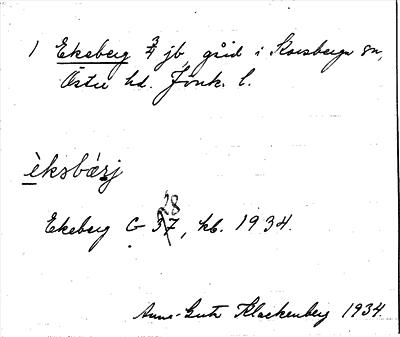 1 Ekeberg 3/4 jb, gård i Korsberga sn,
Östra hd. Jönk. l.
èksbárj
Ekeberg G 37, kb. 1934.
28
Anna-Greta Klackenberg 1934.